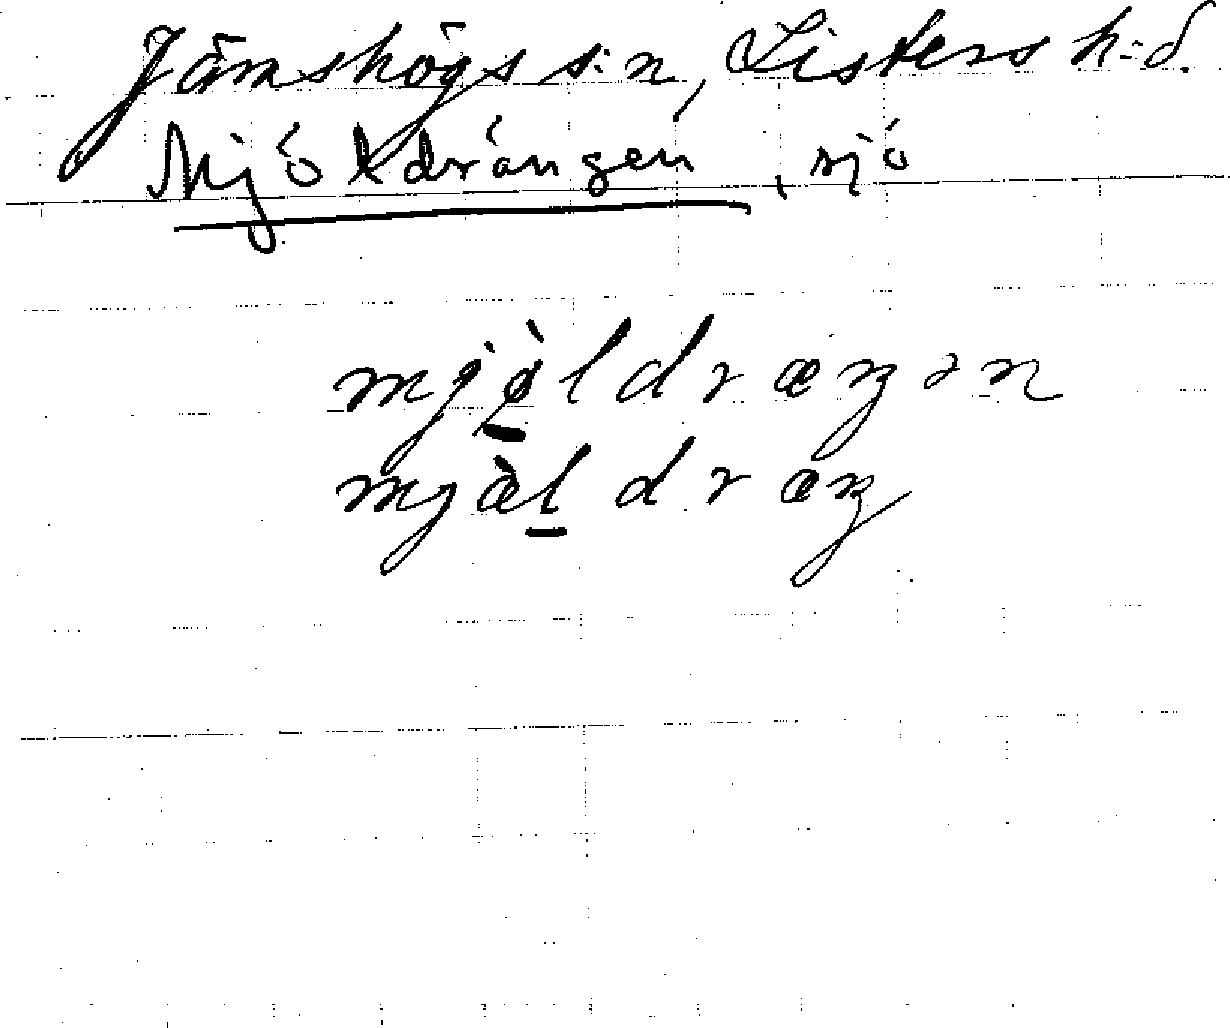 Jämshögs s:n, Listers h:d.
Mjöldrängen, sjö
mjø̀ldræŋən
mjæ̀ldræŋ